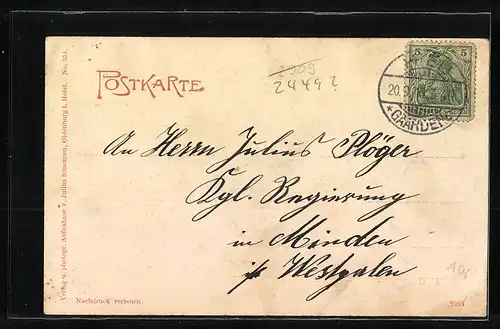 POSTKARTE
2909
24492
5 5
20.9.
*GAARDEN
An Herrn Julius Plöger
Kgl. Regierung
in Minden
i/ Westfalen
Verlag u. photogr. Aufnahme v. Julius Simonsen, Oldenburg i. Holst. No. 251.
Nachdruck verboten.